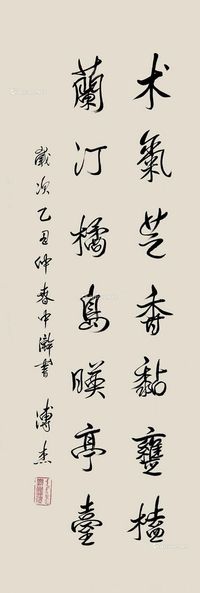 术氣芝香黏甕榼
蘭汀橘島暎亭臺
歲次乙丑仲春中澣書 溥杰